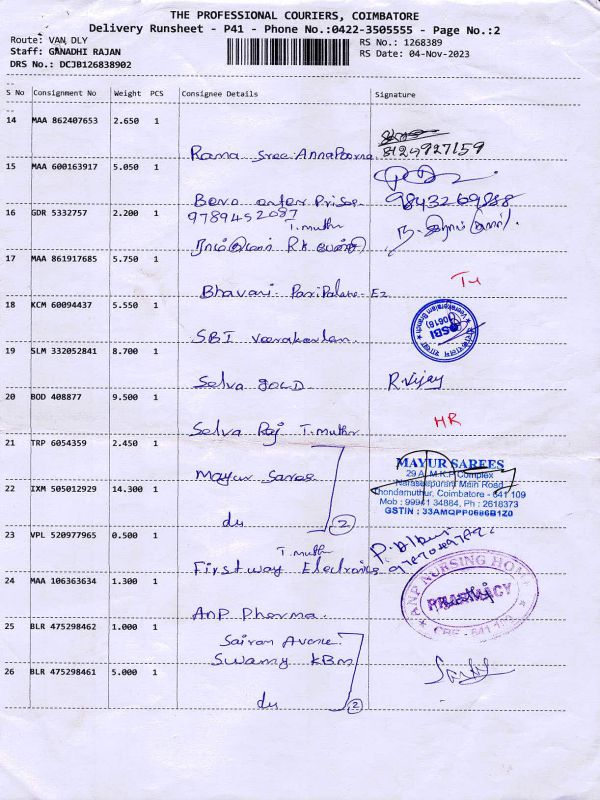 THE PROFESSIONAL COURIERS, COIMBATORE
Delivery Runsheet - P41 - Phone No.:0422-3505555 - Page No.:2
Route: VAN DLY
Staff: GANADHI RAJAN
DRS No.: DCJB126838902
RS No.: 1268389
RS Date: 04-Nov-2023
S No Consignment No Weight PCS Consignee Details Signature
14 MAA 862407653 2.650 1
Rama Sree Annapoorna 8124927159
15 MAA 600163917 5.050 1
9843269888
9789452087
16 GDR 5332757 2.200 1
T.muthr
17 MAA 861917685 5.750 1
Bhavani
18 KCM 60094437 5.550 1
SBI
SBI
19 SLM 332052841 8.700 1
Selva GOLD R.Vijay
20 BOD 408877 9.500 1
Selva Raj T.muthr HR
21 TRP 6054359 2.450 1
Mayur Saree
MAYUR SAREES
29 A, M.K.P Complex
Naraseepuram Main Road
Thondamuthur, Coimbatore - 641 109
Mob : 99941 34884, Ph : 2618373
22 IXM 505012929 14.300 1
du 2
23 VPL 520977965 0.500 1
T.muth
Firstway Electronics
24 MAA 106363634 1.300 1
ANP Pharma
ANP NURSING HOME
PHARMACY
25 BLR 475298462 1.000 1
Sairam Avenue
Swamy KBM
26 BLR 475298461 5.000 1
du 2